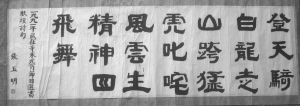 登天騎
白龍走
山跨猛
虎叱咤
風雲生
精神四
飛舞